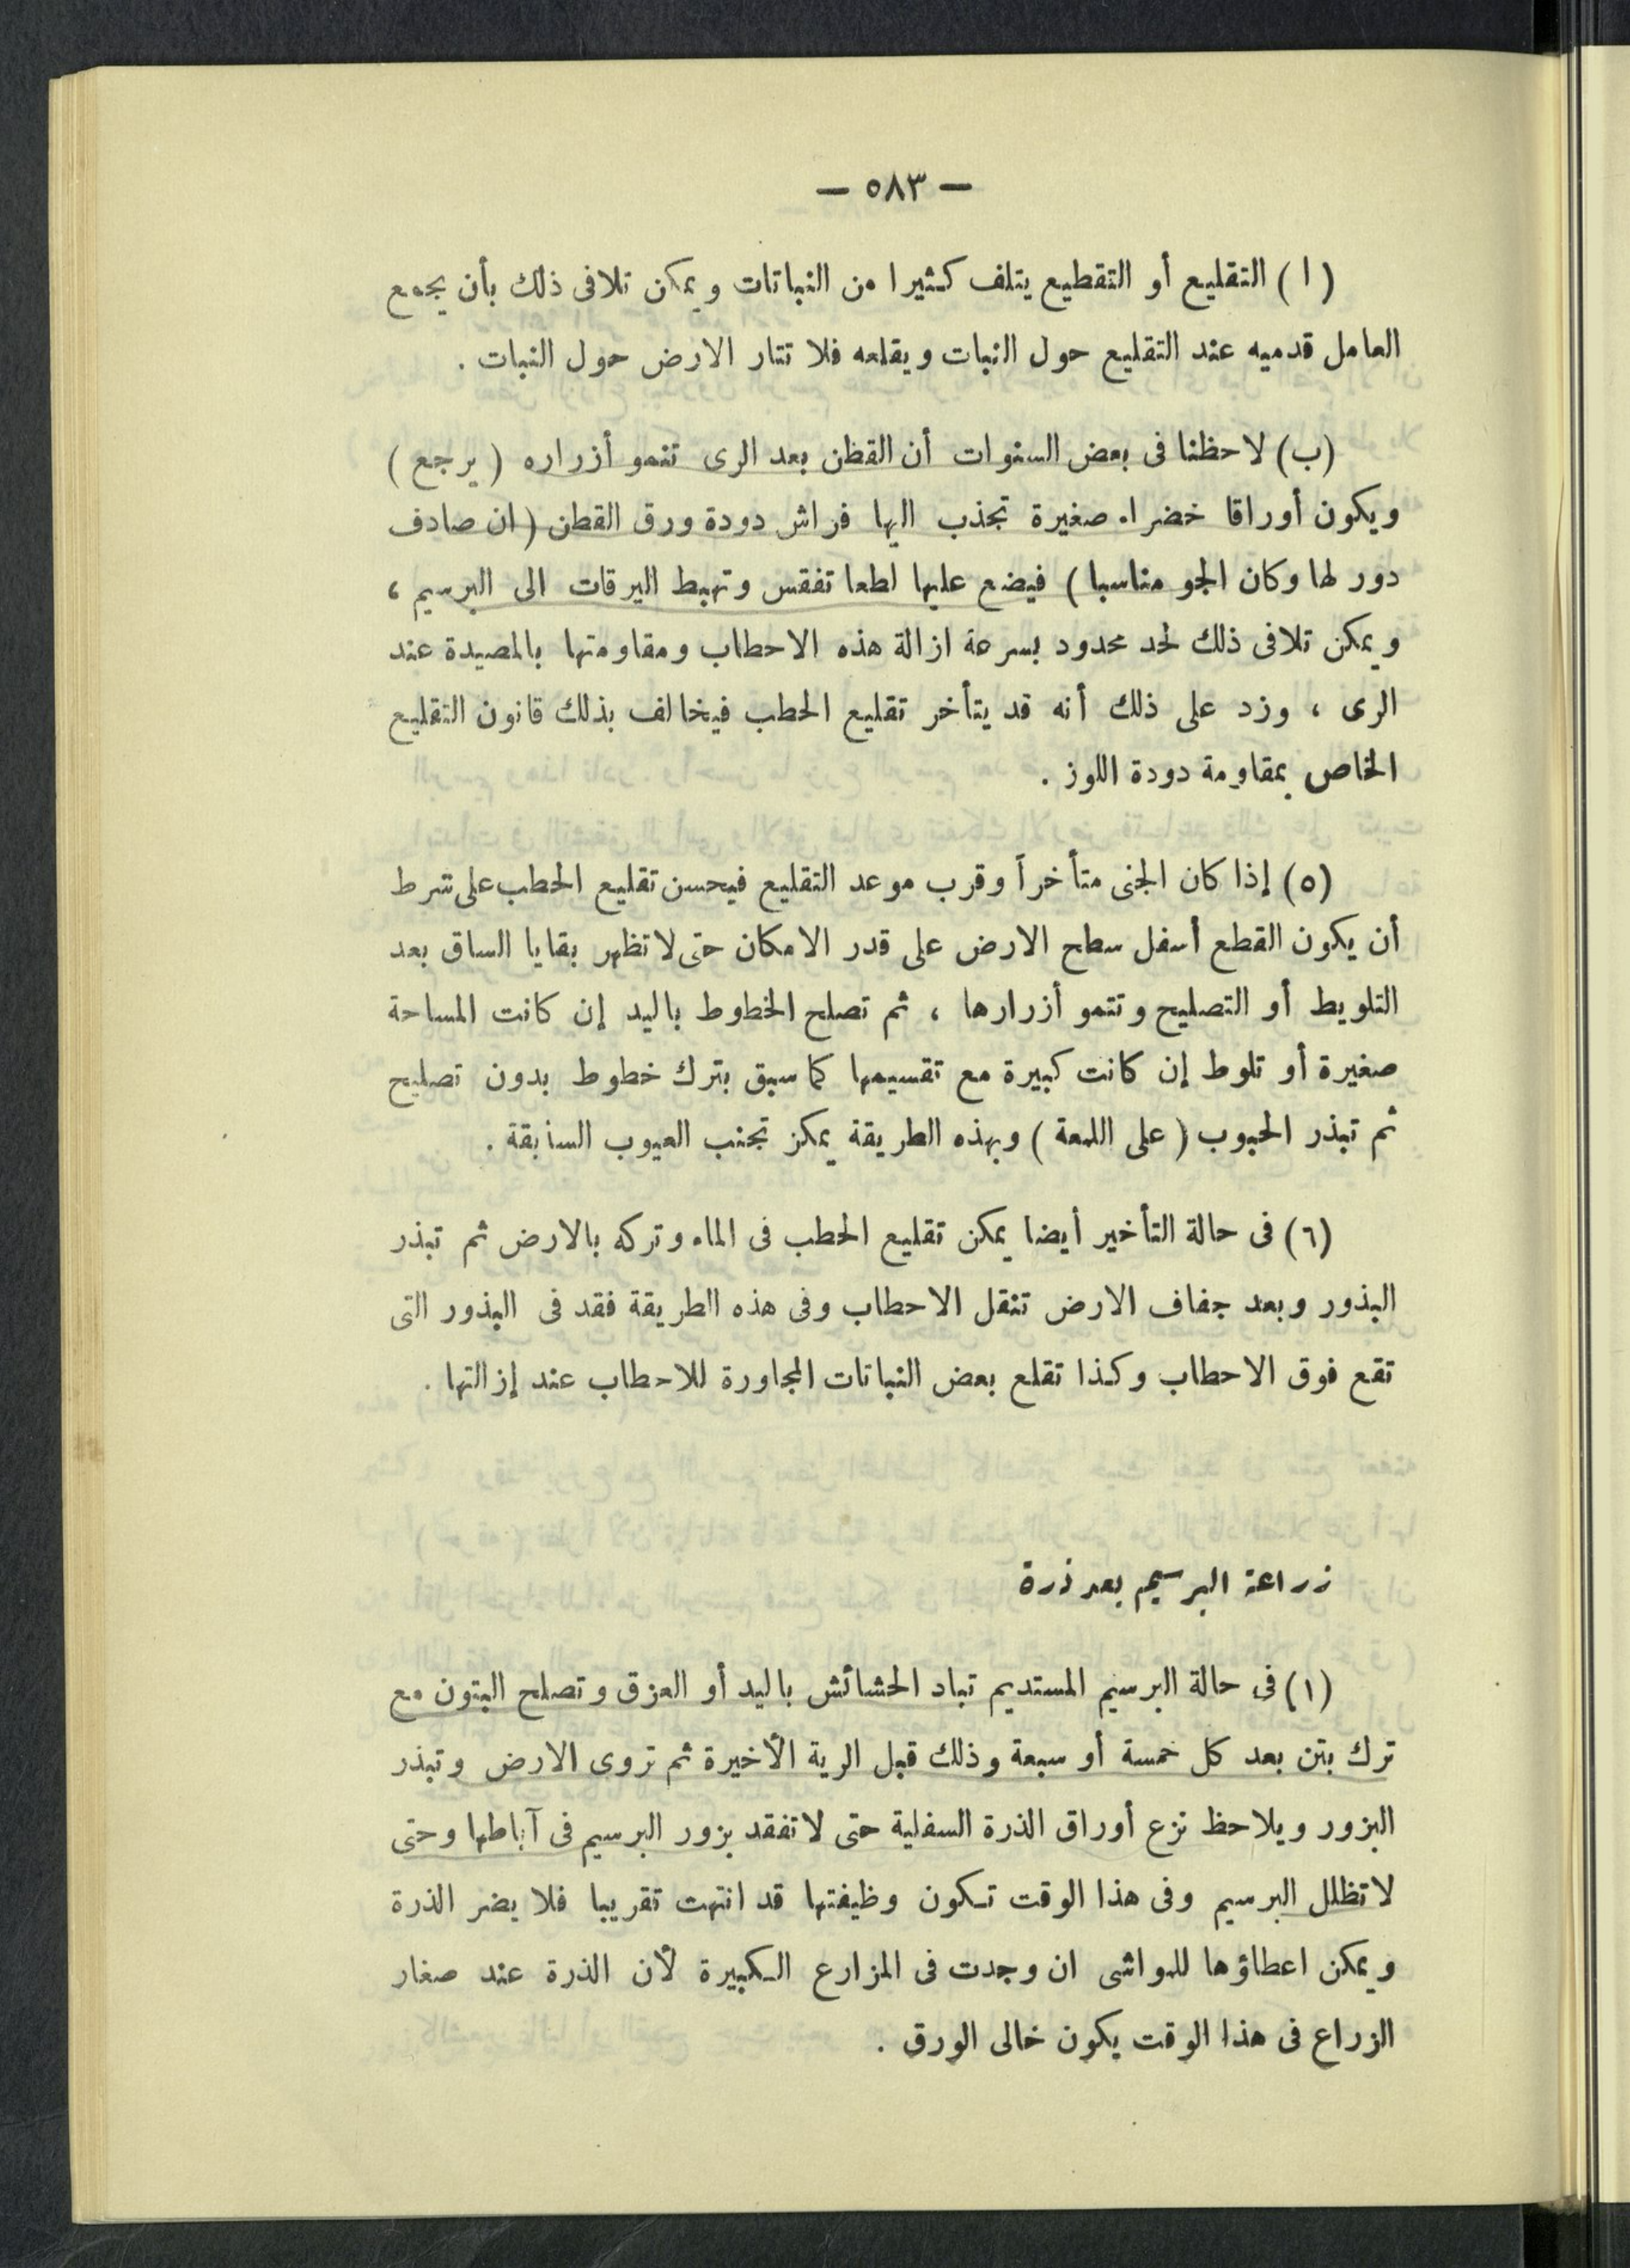 — ٥٨٣ —
(ا) التقليع أو التقطيع يتلف كثيرا من النباتات ويمكن تلافى ذلك بأن يجمع
العامل قدميه عند التقليع حول النبات ويقلعه فلا تثار الارض حول النبات .
(ب) لاحظنا فى بعض السنوات أن القطن بعد الرى تنمو أزراره ( يرجع )
ويكون أوراقا خضراء صغيرة تجذب اليها فراش دودة ورق القطن ( ان صادف
دور لها وكان الجو مناسبا ) فيضع عليها لطعا تفقس وتهبط اليرقات الى البرسيم ،
ويمكن تلافى ذلك لحد محدود بسرعة ازالة هذه الاحطاب ومقاومتها بالمصيدة عند
الرى ، وزد على ذلك أنه قد يتأخر تقليع الحطب فيخالف بذلك قانون التقليع
الخاص بمقاومة دودة اللوز .
(٥) إذا كان الجنى متأخراً وقرب موعد التقليع فيحسن تقليع الحطب على شرط
أن يكون القطع أسفل سطح الارض على قدر الامكان حتى لا تظهر بقايا الساق بعد
التلويط أو التصليح وتنمو أزرارها ، ثم تصلح الخطوط باليد إن كانت المساحة
صغيرة أو تلوط إن كانت كبيرة مع تقسيمها كما سبق بترك خطوط بدون تصليح
ثم تبذر الحبوب ( على اللمعة ) وبهذه الطريقة يمكن تجنب العيوب السابقة .
(٦) فى حالة التأخير أيضا يمكن تقليع الحطب فى الماء وتركه بالارض ثم تبذر
البذور وبعد جفاف الارض تنقل الاحطاب وفى هذه الطريقة فقد فى البذور التى
تقع فوق الاحطاب وكذا تقلع بعض النباتات المجاورة للاحطاب عند إزالتها .
زراعة البرسيم بعد ذرة
(١) فى حالة البرسيم المستديم تباد الحشائش باليد أو العزق وتصلح البتون مع
ترك بتن بعد كل خمسة أو سبعة وذلك قبل الرية الأخيرة ثم تروى الارض وتبذر
البزور ويلاحظ نزع أوراق الذرة السفلية حتى لا تفقد بزور البرسيم فى آباطها وحتى
لا تظلل البرسيم وفى هذا الوقت تكون وظيفتها قد انتهت تقريبا فلا يضر الذرة
ويمكن اعطاؤها للمواشى ان وجدت فى المزارع الكبيرة لأن الذرة عند صغار
الزراع فى هذا الوقت يكون خالى الورق .